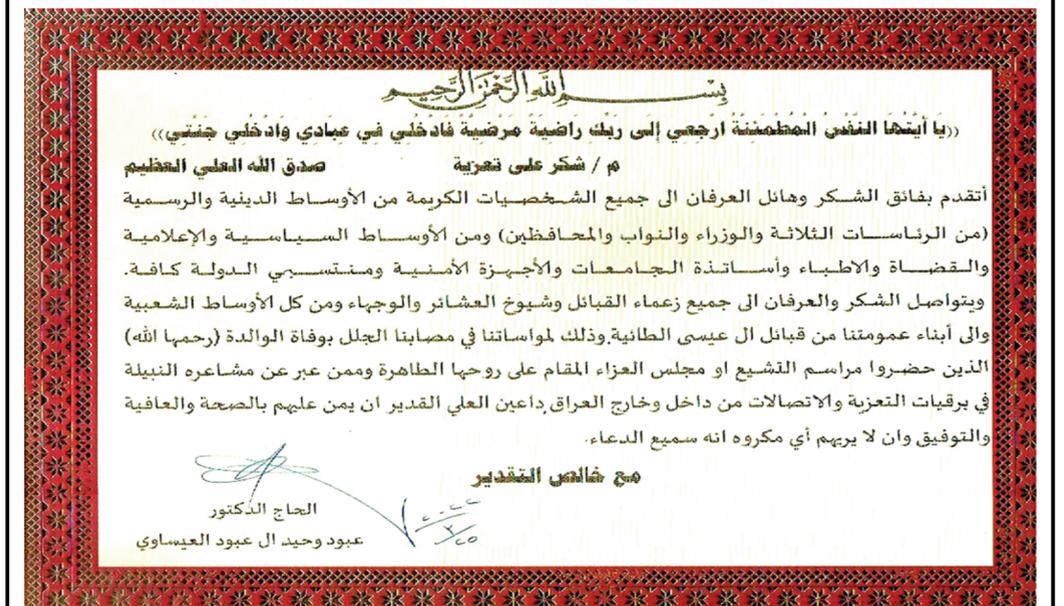 بسم الله الرحمن الرحيم
((يا أيتها النفس المطمئنة ارجعي إلى ربك راضية مرضية فادخلي في عبادي وادخلي جنتي))
صدق الله العلي العظيم
م / شكر على تعزية
أتقدم بفائق الشكر وهائل العرفان الى جميع الشخصيات الكريمة من الأوساط الدينية والرسمية
(من الرئاسات الثلاثة والوزراء والنواب والمحافظين) ومن الأوساط السياسية والإعلامية
والقضاة والاطباء وأساتذة الجامعات والأجهزة الأمنية ومنتسبي الدولة كافة.
ويتواصل الشكر والعرفان الى جميع زعماء القبائل وشيوخ العشائر والوجهاء ومن كل الأوساط الشعبية
والى أبناء عمومتنا من قبائل ال عيسى الطائية.وذلك لمواساتنا في مصابنا الجلل بوفاة الوالدة (رحمها الله)
الذين حضروا مراسم التشيع او مجلس العزاء المقام على روحها الطاهرة وممن عبر عن مشاعره النبيلة
في برقيات التعزية والاتصالات من داخل وخارج العراق.داعين العلي القدير ان يمن عليهم بالصحة والعافية
والتوفيق وان لا يريهم أي مكروه انه سميع الدعاء.
مع خالص التقدير
الحاج الدكتور
عبود وحيد ال عبود العيساوي